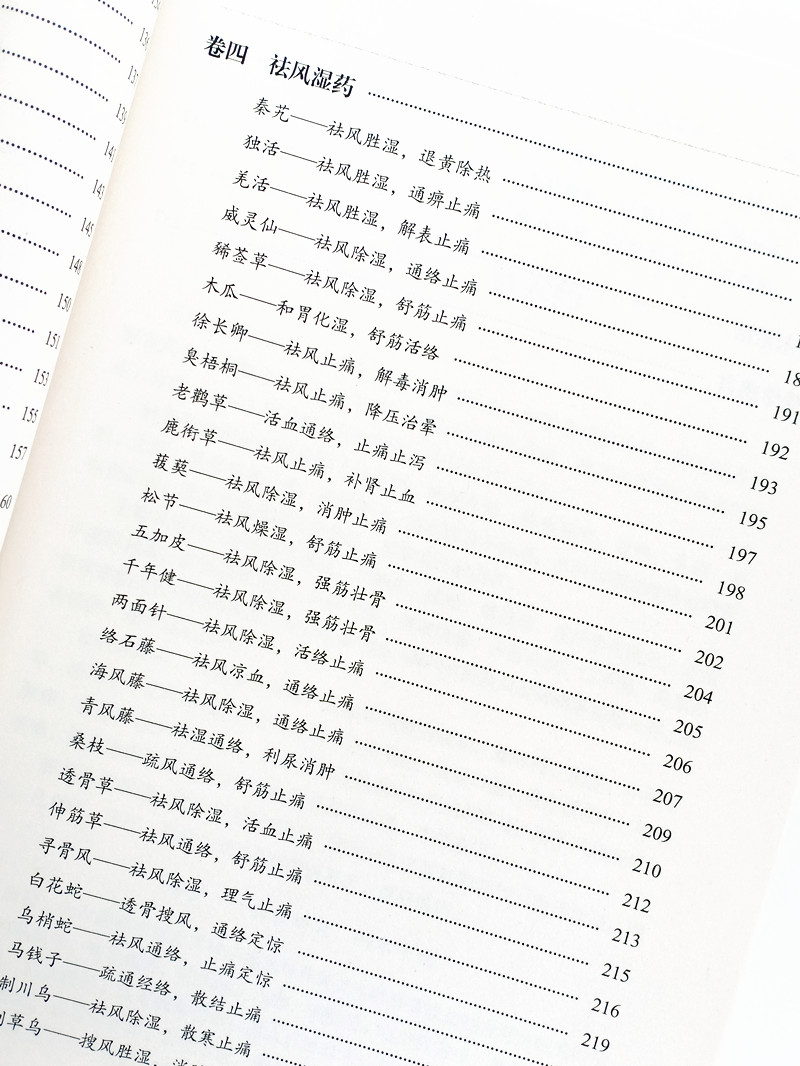 139
145
148
150
151
153
155
157
60
卷四 祛风湿药
秦艽——祛风胜湿，退黄除热
独活——祛风胜湿，通痹止痛
羌活——祛风胜湿，解表止痛 1
威灵仙——祛风除湿，通络止痛 18
豨莶草——祛风除湿，舒筋止痛 191
木瓜——和胃化湿，舒筋活络 192
徐长卿——祛风止痛，解毒消肿 193
臭梧桐——祛风止痛，降压治晕 195
老鹳草——活血通络，止痛止泻 197
鹿衔草——祛风止痛，补肾止血 198
菝葜——祛风除湿，消肿止痛 201
松节——祛风燥湿，舒筋止痛 202
五加皮——祛风除湿，强筋壮骨 204
千年健——祛风除湿，强筋壮骨 205
两面针——祛风除湿，活络止痛 206
络石藤——祛风凉血，通络止痛 207
海风藤——祛风除湿，通络止痛 209
青风藤——祛湿通络，利尿消肿 210
桑枝——疏风通络，舒筋止痛 212
透骨草——祛风除湿，活血止痛 213
伸筋草——祛风通络，舒筋止痛 215
寻骨风——祛风除湿，理气止痛 216
白花蛇——透骨搜风，通络定惊 219
乌梢蛇——祛风通络，止痛定惊
马钱子——疏通经络，散结止痛
制川乌——祛风除湿，散寒止痛
草乌——搜风胜湿，